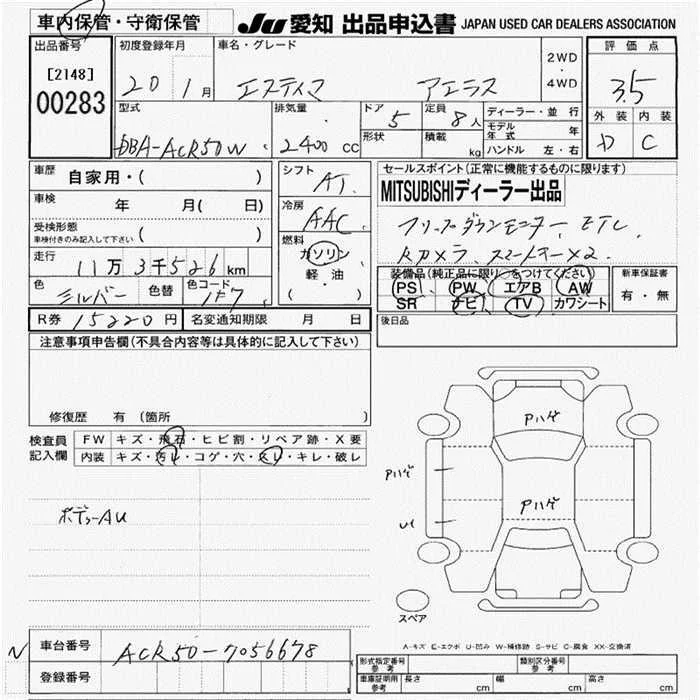 車内保管・守衛保管 JU 愛知 出品申込書 JAPAN USED CAR DEALERS ASSOCIATION
出品番号 初度登録年月 車名・グレード 2WD・4WD 評価点
[2148] 00283 20 1月 エスティマ アエラス 3.5
型式 排気量 ドア 5 定員 8人 ディーラー・並行 外装 内装
DBA-ACR50W 2400cc 形状 積載 kg モデル年式 年 D C
ハンドル 左・右
車歴 自家用・( ) シフト AT セールスポイント(正常に機能するものに限ります)
車検 年 月( 日) 冷房 AAC MITSUBISHIディーラー出品
受検形態 ( ) フリップダウンモニター、ETC、
車検付きのみ記入して下さい 燃料 ガソリン Rカメラ、スマートキー×2
走行 11万3千526km 軽油 装備品(純正品に限り○をつけてください) 新車保証書
色 シルバー 色替 色コード 1F7 ・( ) PS PW エアB AW 有・無
SR ナビ TV カワシート
R券 15220円 名変通知期限 月 日 後日品
注意事項申告欄(不具合内容等は具体的に記入して下さい)
修復歴 有(箇所
検査員記入欄 FW キズ・飛石・ヒビ割・リペア跡・X要
内装 キズ・汚レ・コゲ・穴・スレ・キレ・破レ
Pハゲ
Pハゲ
Pハゲ
ボデーAU
スペア
A-キズ E-エクボ U-凹み W-補修跡 S-サビ C-腐食 XX-交換済
N 車台番号 ACR50-7056678
登録番号
形式指定番号 参考 類別区分番号 参考
車庫証明用 参考 長さ cm 幅 cm 高さ cm